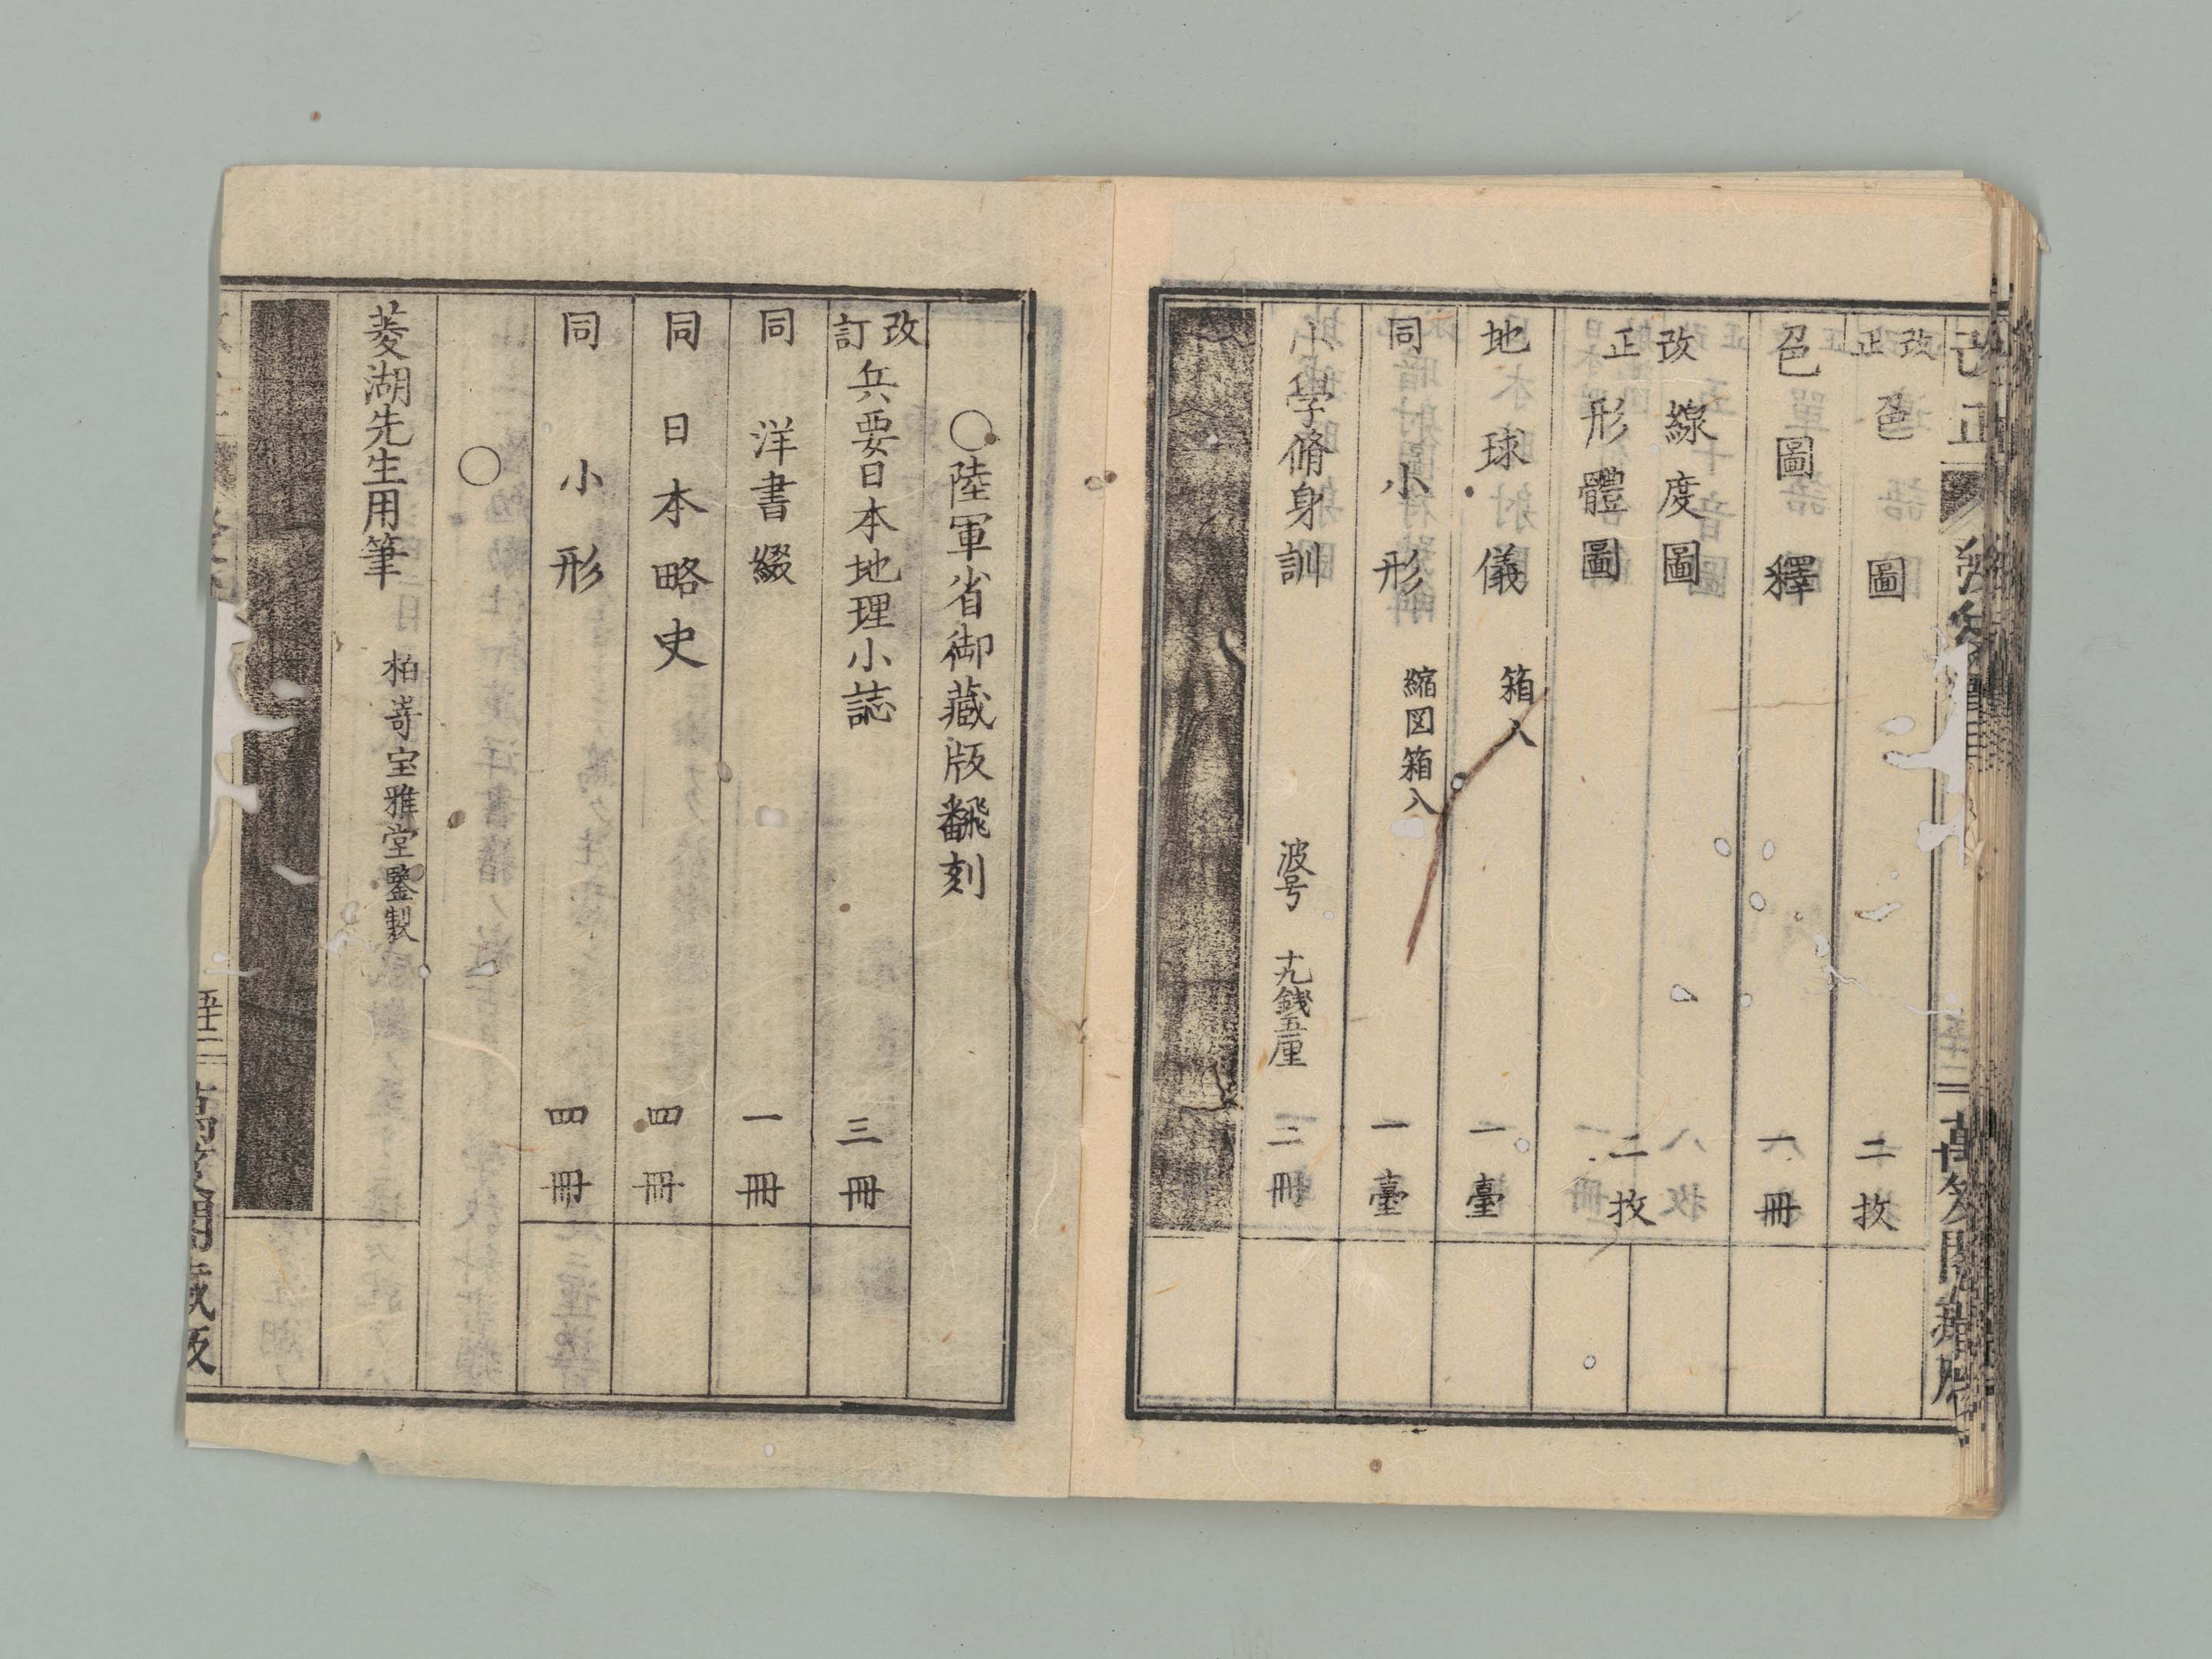 改正
改正 色圖 二枚
色圖釋 一冊
改正 線度圖
形體圖 二枚
地球儀 箱入 一臺
同 小形 縮図箱入 一臺
小學脩身訓 波号 十九銭五厘 二冊
○陸軍省御藏版飜刻
改訂 兵要日本地理小誌 三冊
同 洋書綴 一冊
同 日本略史 四冊
同 小形 四冊
○
菱湖先生用筆 柏嵜宝雅堂鑒製